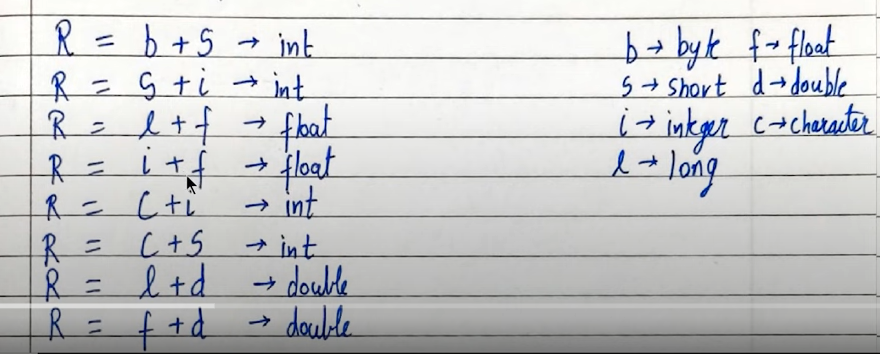 R = b + s → int
R = s + i → int
R = l + f → float
R = i + f → float
R = c + i → int
R = c + s → int
R = l + d → double
R = f + d → double
b → byte f → float
s → short d → double
i → integer c → character
l → long